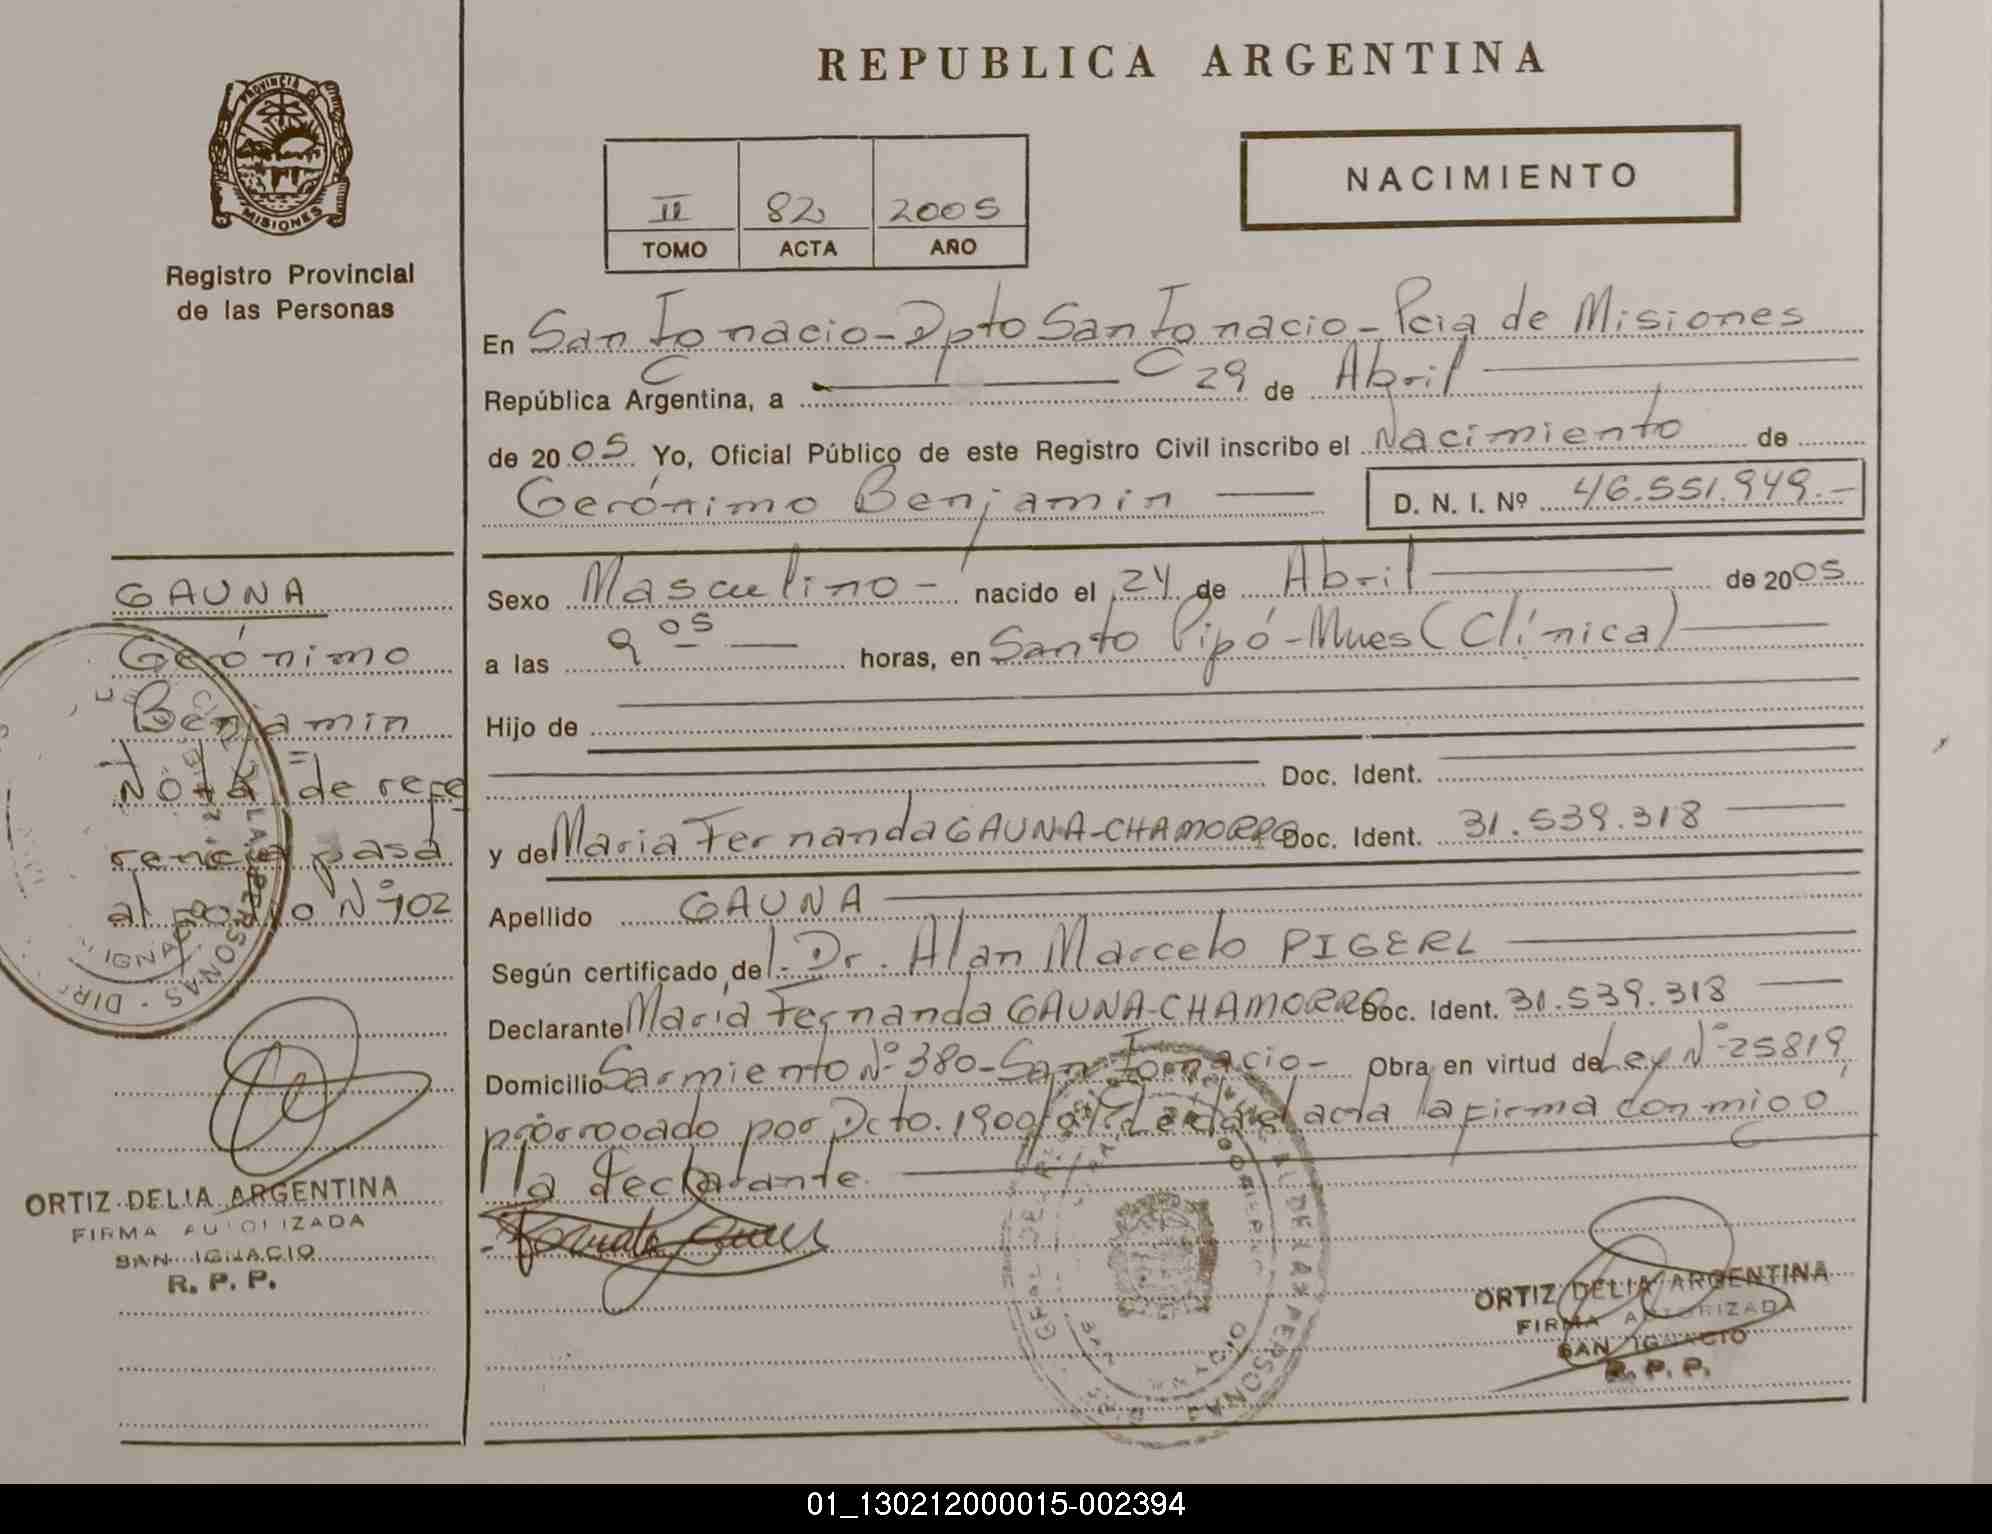 REPUBLICA ARGENTINA
PROVINCIA DE
MISIONES
Registro Provincial
de las Personas
II 82 2005
TOMO ACTA AÑO
NACIMIENTO
En San Ignacio-Dpto San Ignacio-Pcia de Misiones
República Argentina, a 29 de Abril
de 2005 Yo, Oficial Público de este Registro Civil inscribo el Nacimiento de
Gerónimo Benjamin D. N. I. Nº 46.551.949.-
Sexo Masculino - nacido el 24 de Abril de 2005
a las 9 05 horas, en Santo Pipó-Mnes (Clínica)
Hijo de
Doc. Ident.
y de Maria Fernanda GAUNA-CHAMORRO Doc. Ident. 31.539.318
Apellido GAUNA
Según certificado del. Dr. Alan Marcelo PIGERL
Declarante María Fernanda GAUNA-CHAMORRO Doc. Ident. 31.539.318
Domicilio Sarmiento Nº 380-San Ignacio- Obra en virtud de Ley Nº 25819,
prorrogado por Dcto. 1900/04. Leída el acta la firma conmigo
la declarante.
GAUNA
Gerónimo
Benjamin
Nota = de refe
rencia pasa
al folio Nº 102
ORTIZ DELIA ARGENTINA
FIRMA AUTORIZADA
SAN IGNACIO
R. P. P.
ORTIZ DELIA ARGENTINA
FIRMA AUTORIZADA
SAN IGNACIO
R. P. P.
01_130212000015-002394